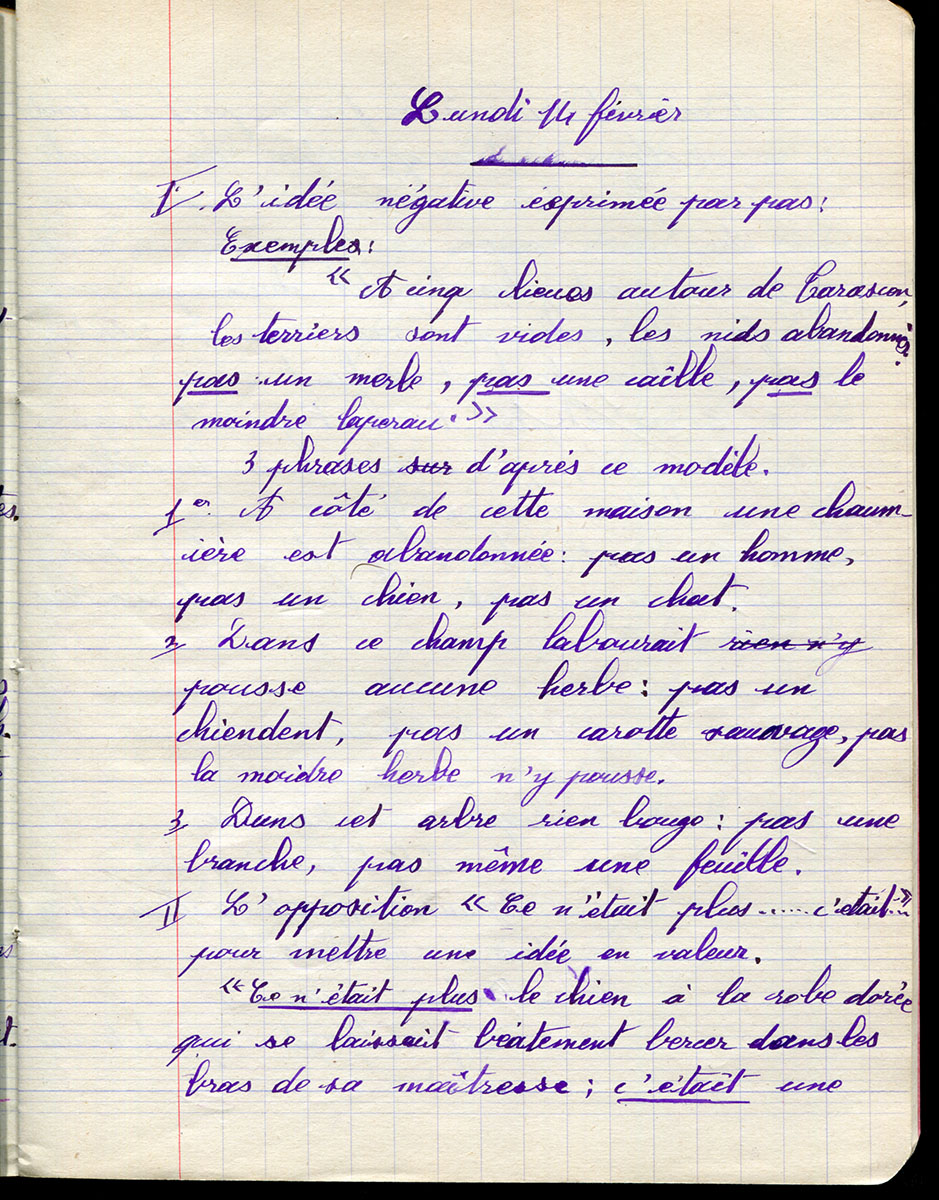 Lundi 14 février
I. L'idée négative exprimée par pas :
Exemples :
« A cinq lieues autour de Tarascon,
les terriers sont vides, les nids abandonnés.
pas un merle, pas une caîlle, pas le
moindre laperau. »
3 phrases sur d'aprés ce modèle.
1er. A côté de cette maison une chaum-
ière est abandonnée : pas un homme,
pas un chien, pas un chat.
2 Dans ce champ labourait rien n'y
pousse aucune herbe : pas un
chiendent, pas un carotte sauvage, pas
la moidre herbe n'y pousse.
3 Dans cet arbre rien bouge : pas une
branche, pas même une feuille.
II L'opposition « Ce n'était plus ...... c'était.. »
pour mettre une idée en valeur.
« Ce n'était plus le chien à la robe dorée
qui se laissait béatement bercer dans les
bras de sa maîtresse ; c'étaît une